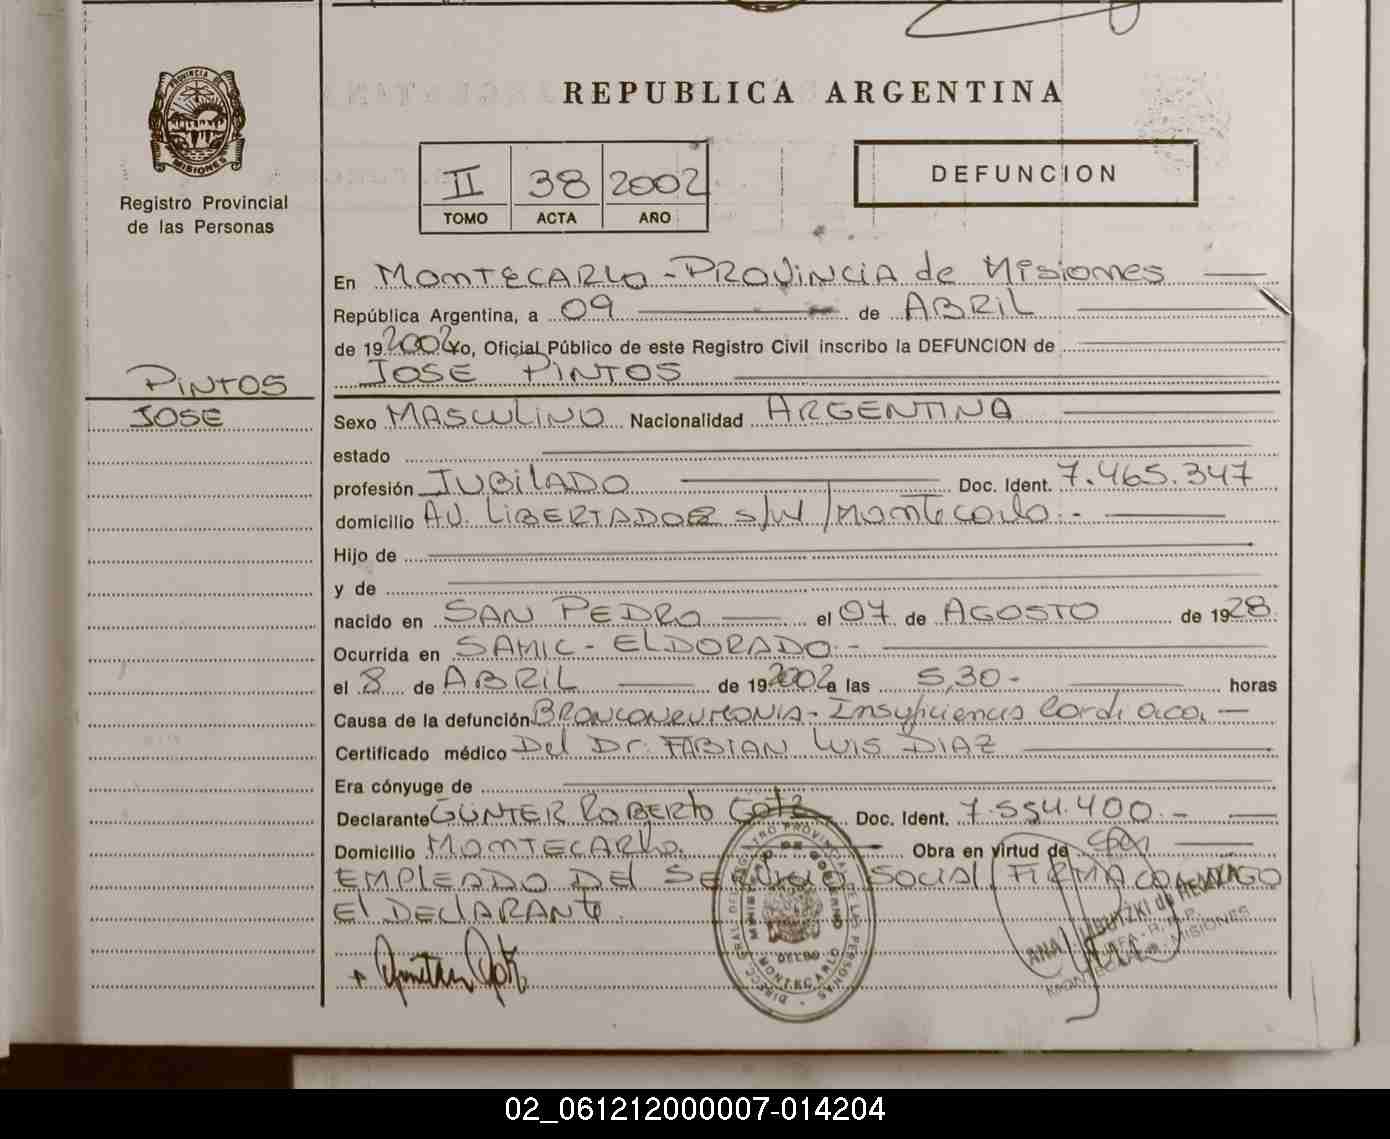 PROVINCIA DE
MISIONES
Registro Provincial
de las Personas
REPUBLICA ARGENTINA
II 38 2002
TOMO ACTA AÑO
DEFUNCION
En MONTECARLO - PROVINCIA de Misiones
República Argentina, a 09 de ABRIL
de 19 2002 Yo, Oficial Público de este Registro Civil inscribo la DEFUNCION de
JOSE PINTOS
PINTOS
JOSE
Sexo MASCULINO Nacionalidad ARGENTINA
estado
profesión JUBILADO Doc. Ident. 7.465.347
domicilio AV. LIBERTADOR s/n / Montecarlo.-
Hijo de
y de
nacido en SAN PEDRO el 07 de AGOSTO de 1928
Ocurrida en SAMIC - ELDORADO.-
el 8 de ABRIL de 19 2002 a las 5,30- horas
Causa de la defunción BRONCONEUMONIA - Insuficiencia Cardiaca
Certificado médico Del Dr. FABIAN LUIS DIAZ
Era cónyuge de
Declarante GUNTER ROBERTO Gotz Doc. Ident. 7.554.400.-
Domicilio MONTECARLO. Obra en virtud de
EMPLEADO DEL SERVICIO SOCIAL / FIRMA CONMIGO
El DEClARANte.
MINISTERIO DE GOBIERNO
MONTECARLO
MISIONES
02_061212000007-014204